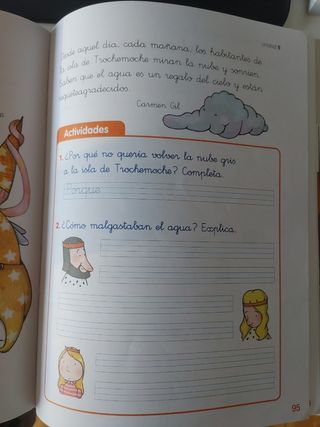 UNIDAD 5
Desde aquel día, cada mañana, los habitantes de
la isla de Trochemoche miran la nube y sonríen.
Saben que el agua es un regalo del cielo y están
requeteagradecidos.
Carmen Gil
Actividades
1. ¿Por qué no quería volver la nube gris
a la isla de Trochemoche? Completa.
Porque
2. ¿Cómo malgastaban el agua? Explica.
95